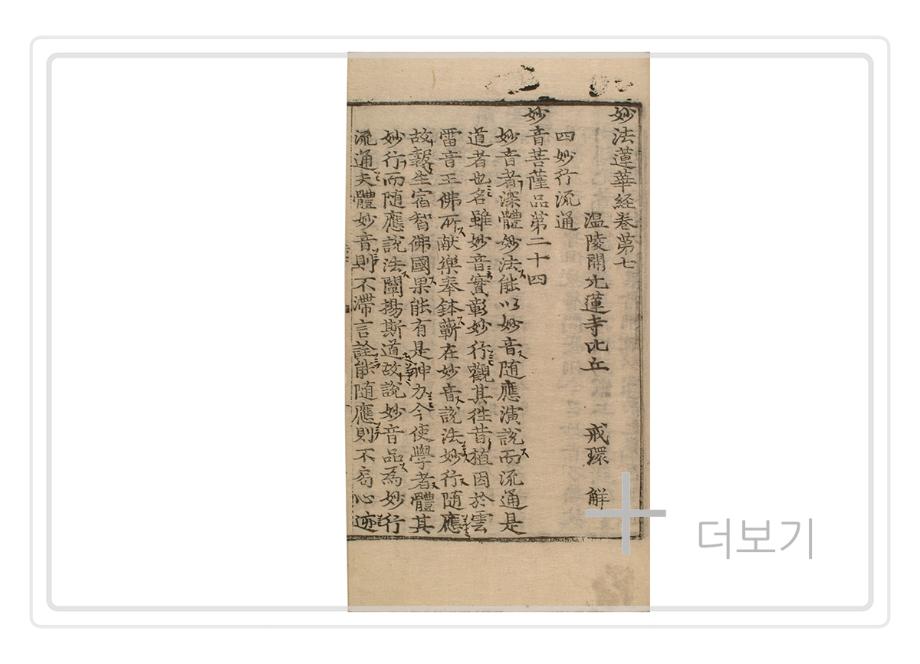 妙法蓮華経巻苐七
温陵開元蓮寺比丘 戒環 觧
四妙行流通
妙音菩薩品第二十四
妙音者深體妙法能以妙音随應演說而流通是
道者也名雖妙音實彰妙行觀其徃昔植因於雲
雷音王佛所献樂奉鉢蘄在妙音說法妙行随應
故報生宿智佛國果能有是神力今使學者體其
妙行而随應說法闡揚斯道故說妙音品為妙行
流通夫體妙音則不滯言詮能随應則不局心迹
더보기